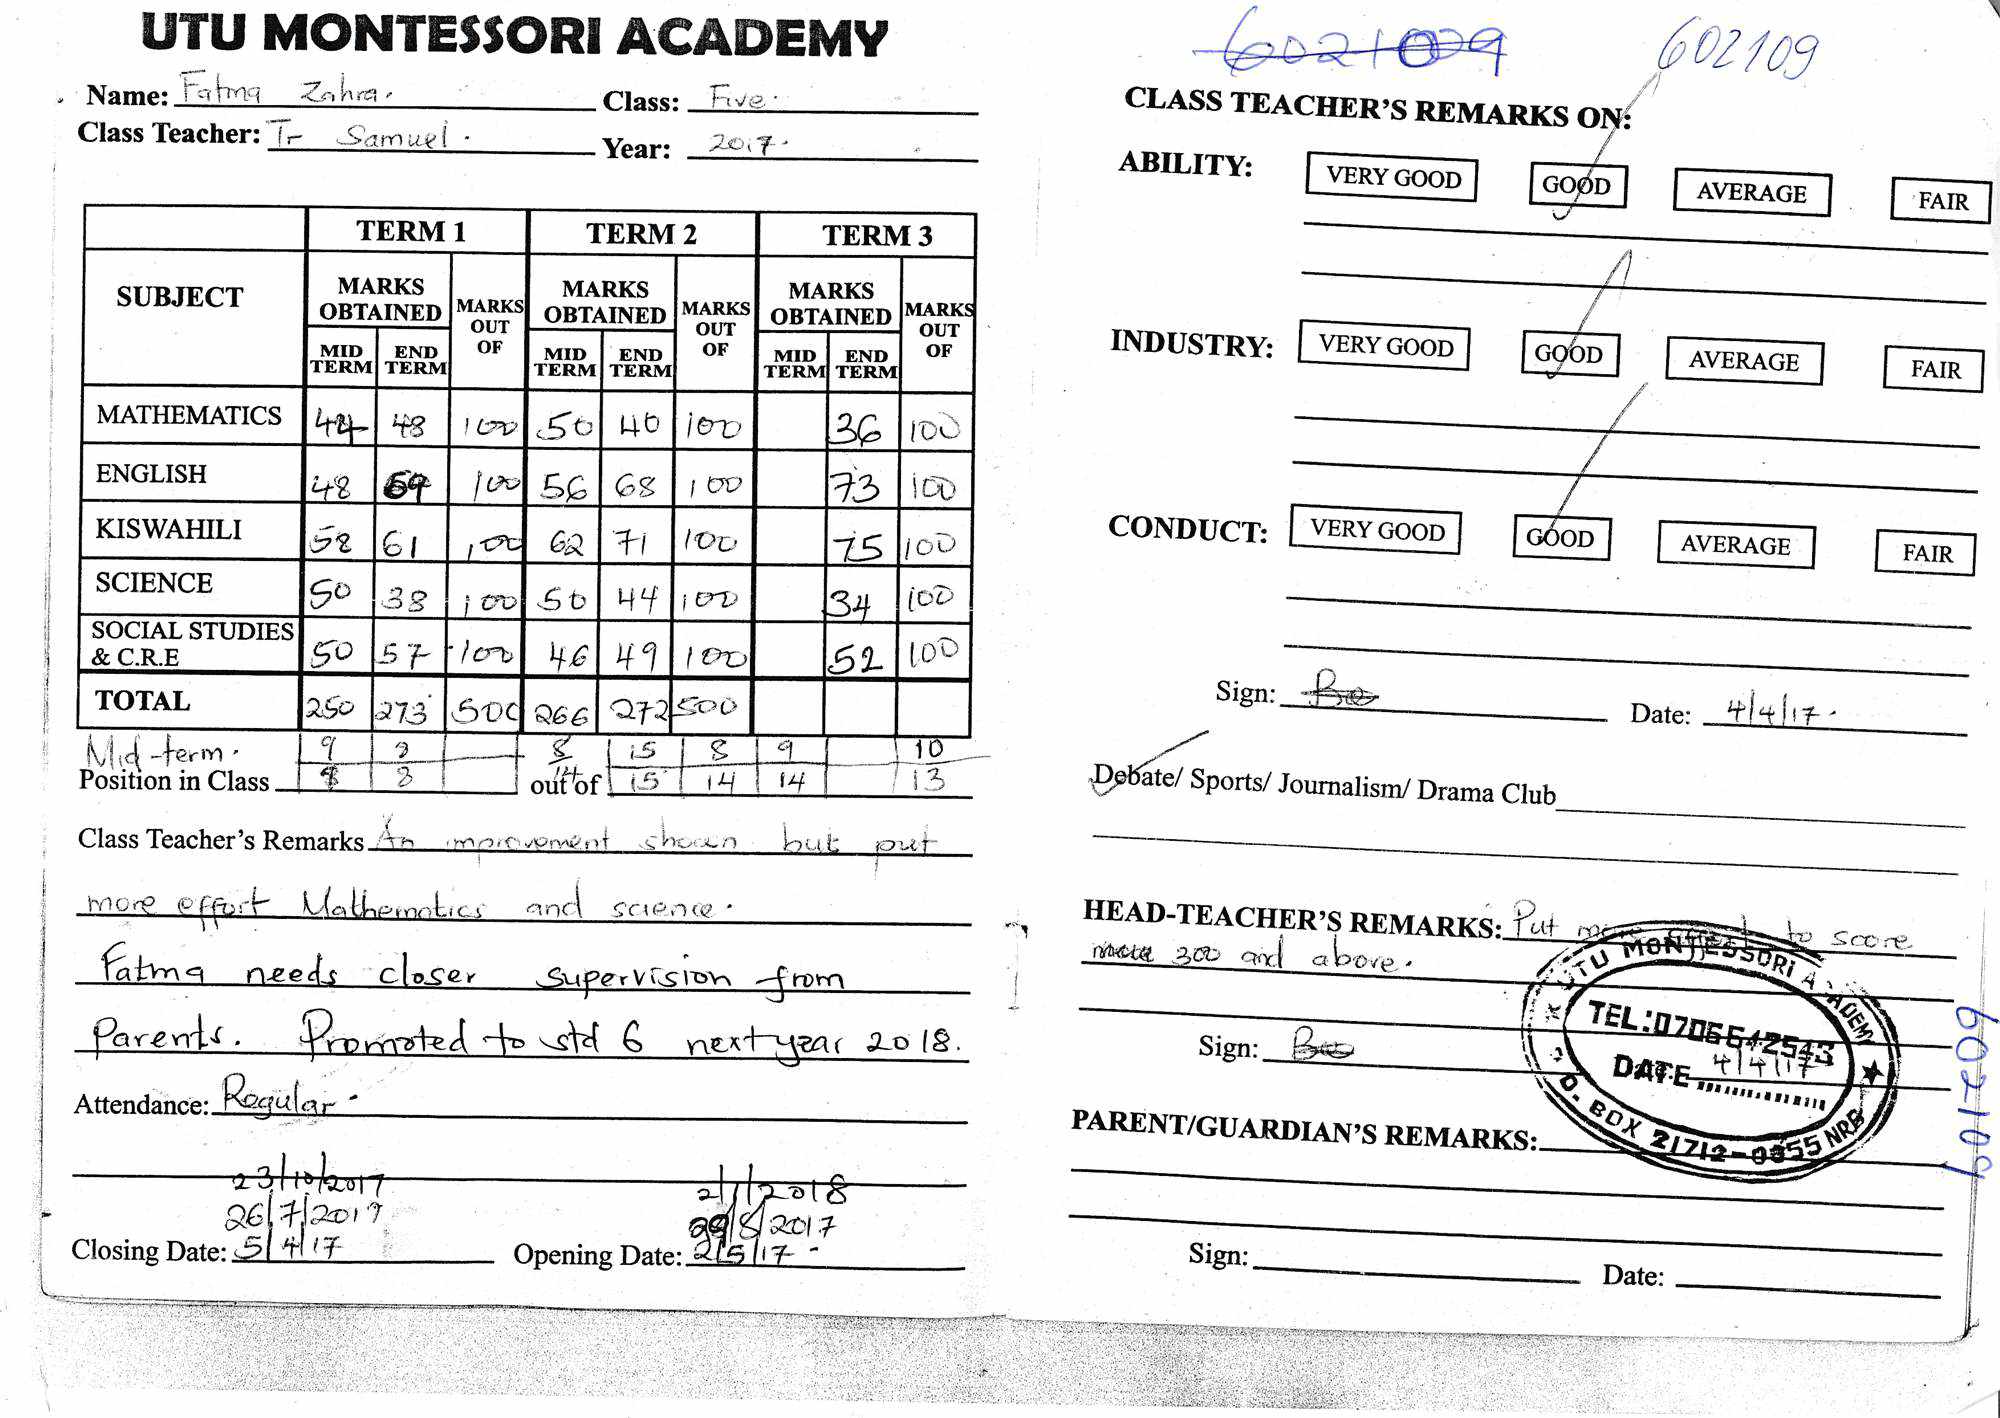 UTU MONTESSORI ACADEMY
Name: Fatma Zahra. Class: Five.
Class Teacher: Tr Samuel. Year: 2017.
TERM 1 TERM 2 TERM 3
SUBJECT MARKS OBTAINED MARKS OUT OF MARKS OBTAINED MARKS OUT OF MARKS OBTAINED MARKS OUT OF
MID TERM END TERM MID TERM END TERM MID TERM END TERM
MATHEMATICS 44 48 100 50 40 100 36 100
ENGLISH 48 59 100 56 68 100 73 100
KISWAHILI 58 61 100 62 71 100 75 100
SCIENCE 50 38 100 50 44 100 34 100
SOCIAL STUDIES & C.R.E 50 57 100 46 49 100 52 100
TOTAL 250 273 500 266 272 500
Mid-term. 9 8 15 8 9 10
Position in Class 8 out of 14 15 14 14 13
Class Teacher's Remarks An improvement shown but put
more effort Mathematics and science.
Fatma needs closer supervision from
Parents. Promoted to std 6 next year 2018.
Attendance: Regular.
23/10/2017 2/1/2018
26/7/2017 29/8/2017
Closing Date: 5/4/17 Opening Date: 2/5/17
602109
CLASS TEACHER'S REMARKS ON:
ABILITY: VERY GOOD GOOD AVERAGE FAIR
INDUSTRY: VERY GOOD GOOD AVERAGE FAIR
CONDUCT: VERY GOOD GOOD AVERAGE FAIR
Sign: Date: 4/4/17.
Debate/ Sports/ Journalism/ Drama Club
HEAD-TEACHER'S REMARKS: Put more effort to score
300 and above.
Sign:
UTU MONTESSORI ACADEMY
TEL:0706642543
DATE 4/4/17
BOX 21712-0055 NRB
602109
PARENT/GUARDIAN'S REMARKS:
Sign: Date: